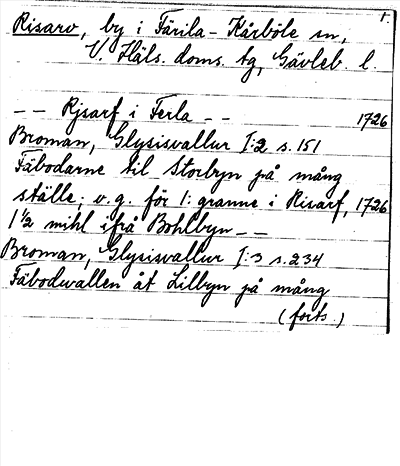 1.
Risarv, by i Färila-Kårböle sn,
V. Häls. doms. tg, Gävleb. l.
-- Rjsarf i Ferla -- 1726
Broman, Glysisvallur I:2 s. 151
Fäbodarne til Storbyn på mång
ställe; v.g. för 1: granne i Risarf, 1726
1½ mihl ifrå Bohlbyn --
Broman, Glysisvallur I:3 s. 234
Fäbodwallen åt Lillbyn på mång
(forts.)